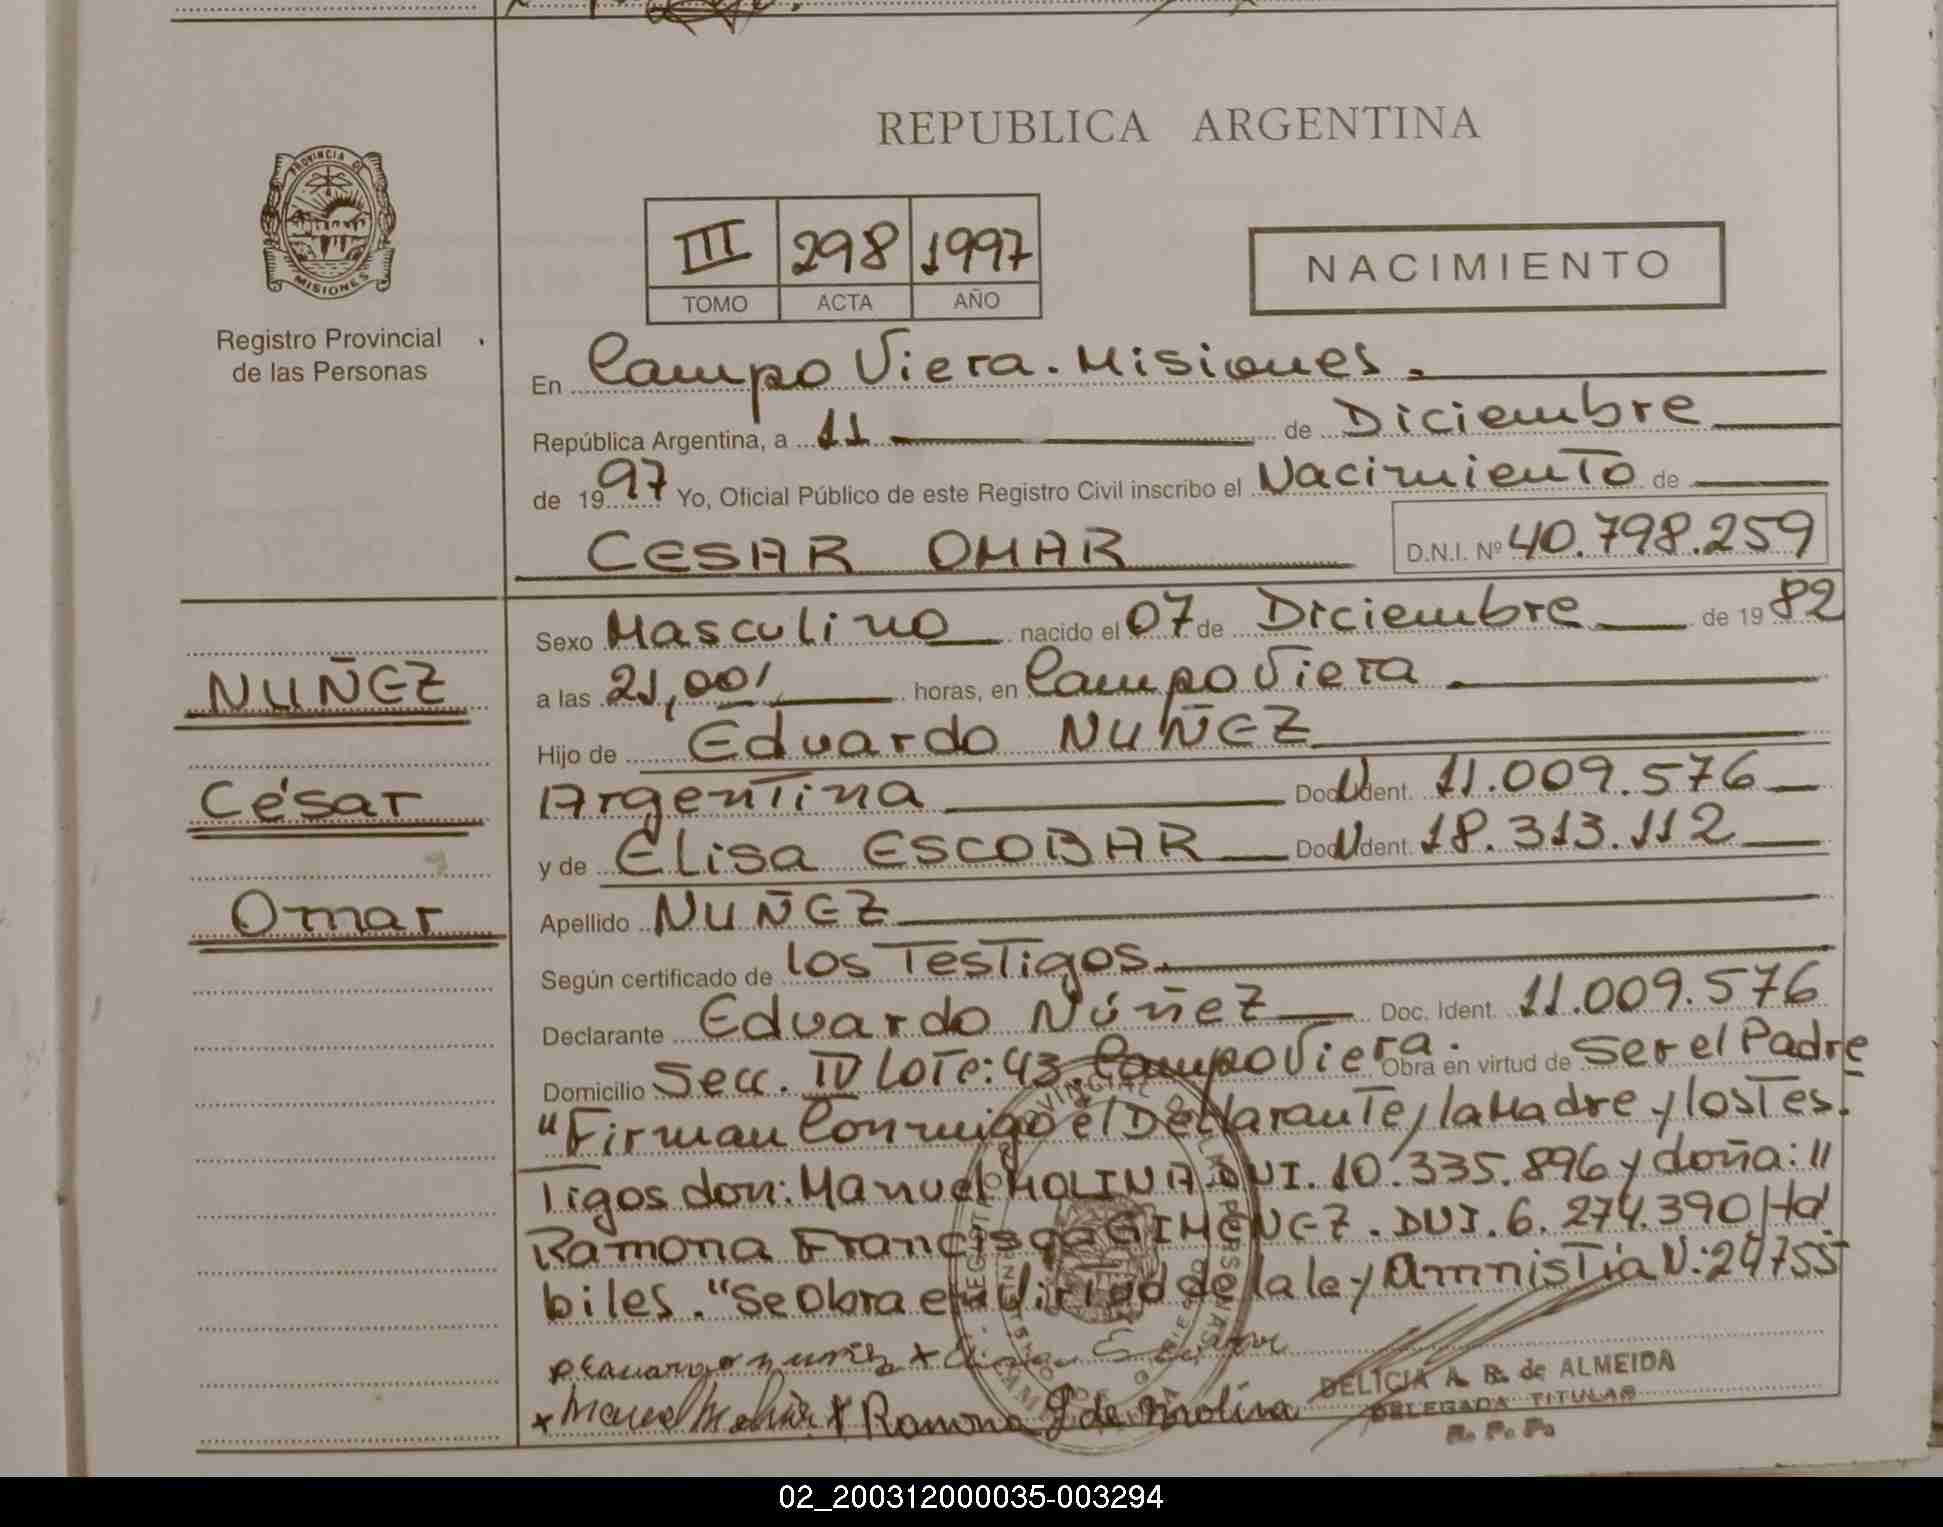 REPUBLICA ARGENTINA
PROVINCIA DE MISIONES
Registro Provincial
de las Personas
III 298 1997
TOMO ACTA AÑO
NACIMIENTO
En Campo Viera. Misiones.
República Argentina, a 11 de Diciembre
de 1997 Yo, Oficial Público de este Registro Civil inscribo el Nacimiento de
CESAR OMAR D.N.I. Nº 40.798.259
NUÑEZ
César
Omar
Sexo Masculino nacido el 07 de Diciembre de 1982
a las 21,00 horas, en Campo Viera
Hijo de Eduardo NUÑEZ
Argentina Doc. Ident. 11.009.576
y de Elisa ESCOBAR Doc. Ident. 18.313.112
Apellido NUÑEZ
Según certificado de los Testigos.
Declarante Eduardo Núñez Doc. Ident. 11.009.576
Domicilio Secc. IV Lote: 43 Campo Viera. Obra en virtud de ser el Padre
"Firman Conmigo el Declarante, la Madre y los Tes.
Tigos don: Manuel MOLINA DNI. 10.335.896 y doña: "
Ramona Francisca GIMENEZ. DNI. 6.274.390 Há
biles. "Se Obra en Virtud de la ley Amnistia N: 24755
Ramona G de Molina
DELICIA A. B. de ALMEIDA
DELEGADA TITULAR
R. P. P.
02_200312000035-003294